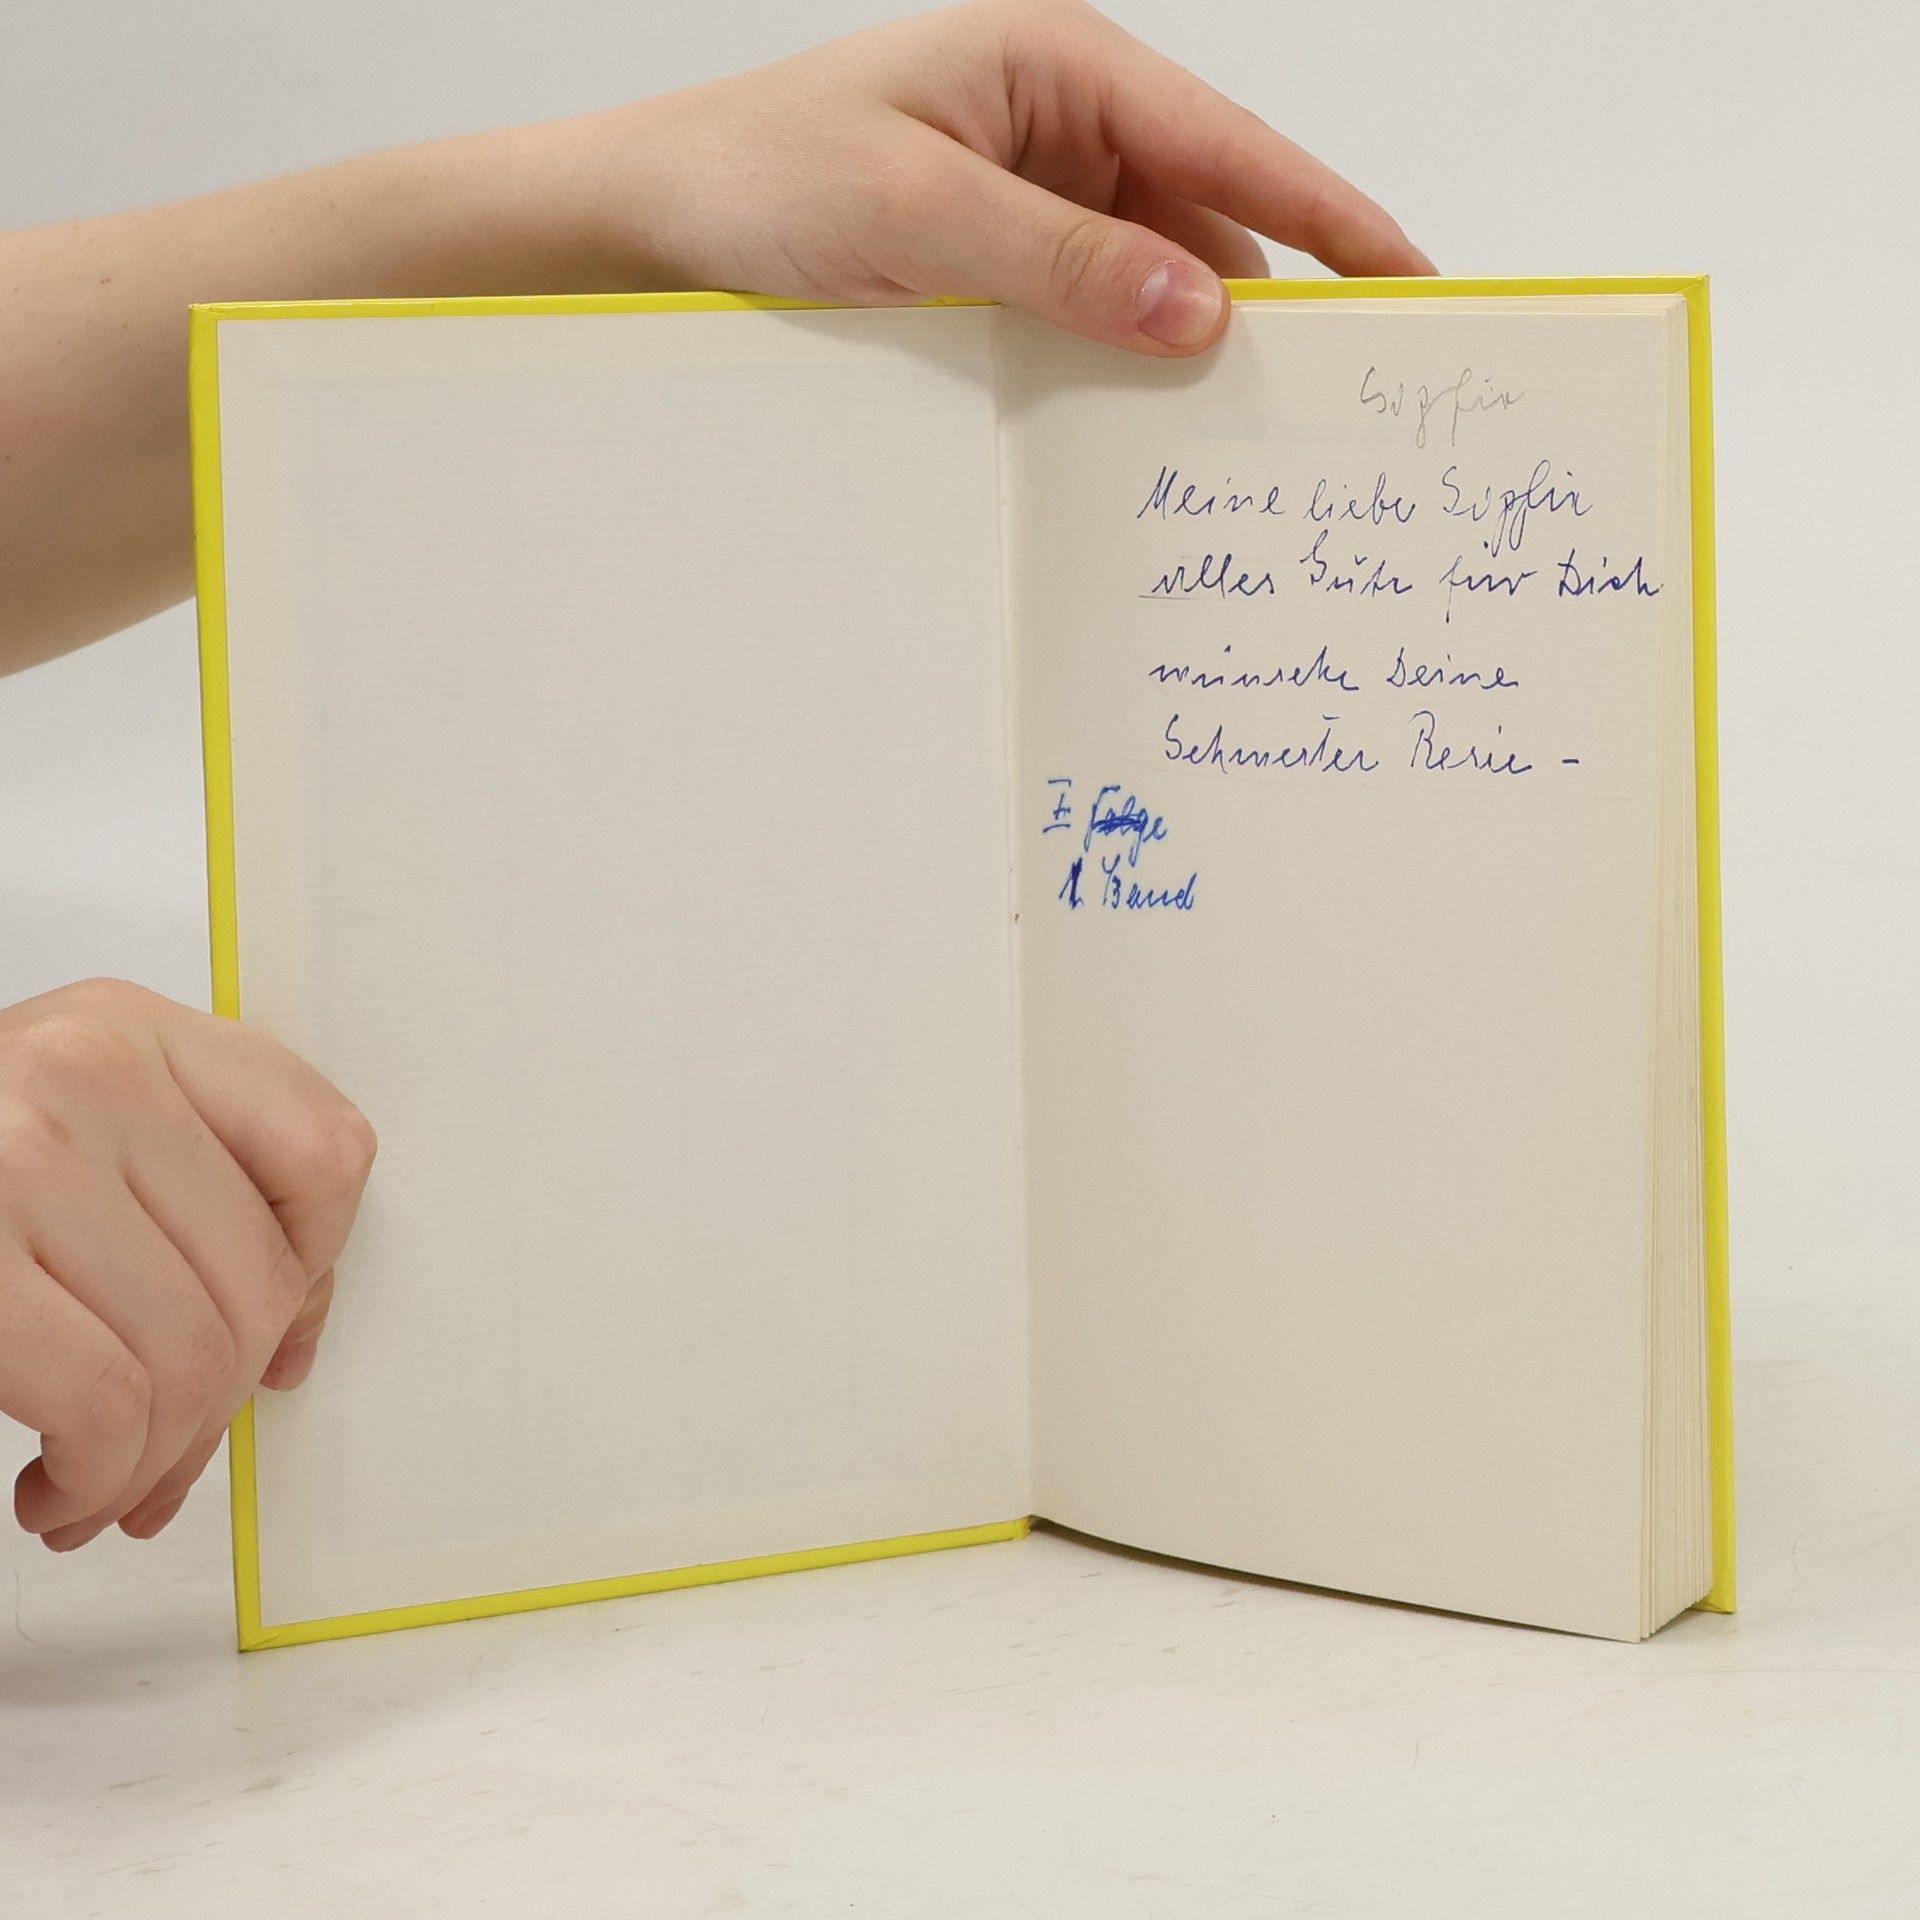 Sopfir
Meine liebe Sopfir
alles Gute für Dich
wünscht Deine
Schwester Resie -
I Folge
1. Band